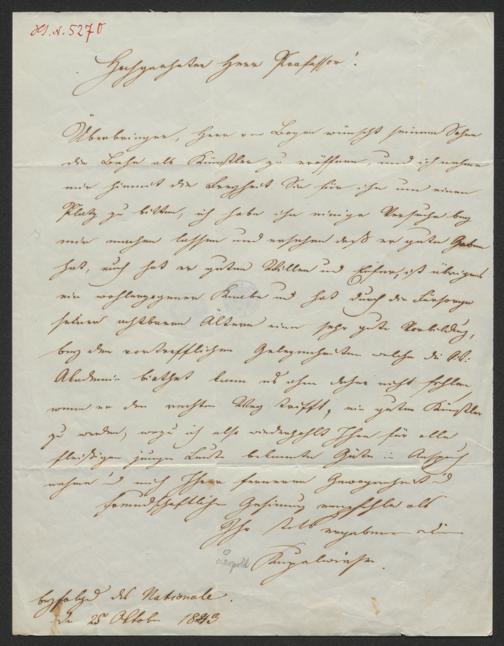 H.I.N. 5270
Hochgeehrter Herr Professor!
Überbringer, Herr von Bayer wünscht seinem Sohn
die Bahn als Künstler zu eröffnen, und ich nehme
mir hiemit die Freyheit Sie für ihn um einen
Platz zu bitten, ich habe ihn einige Versuche bey
mir machen lassen und ersehen daß er gute Gaben
hat, auch hat er guten Willen und Eifer, ist übrigens
ein wohlerzogener Knabe und hat durch die Fürsorge
seiner achtbaren Ältern eine sehr gute Vorbildung,
bey den vortrefflichen Gelegenheiten welche die
Akademie biethet kann es ihm daher nicht fehlen
wenn er den rechten Weg trifft, ein guter Künstler
zu werden, wozu ich also wiederhohlt Ihre für alle
fleißigen junge Leute bekannte Güte in Anspruch
nehme und mich Ihrer ferneren Gewogenheit und
freundschaftlichen Gesinnung empfehle als
Ihr stets ergebener
Leopold
Kupelwieser.
beyfolgd das Nationale.
den 25 Oktob 1843